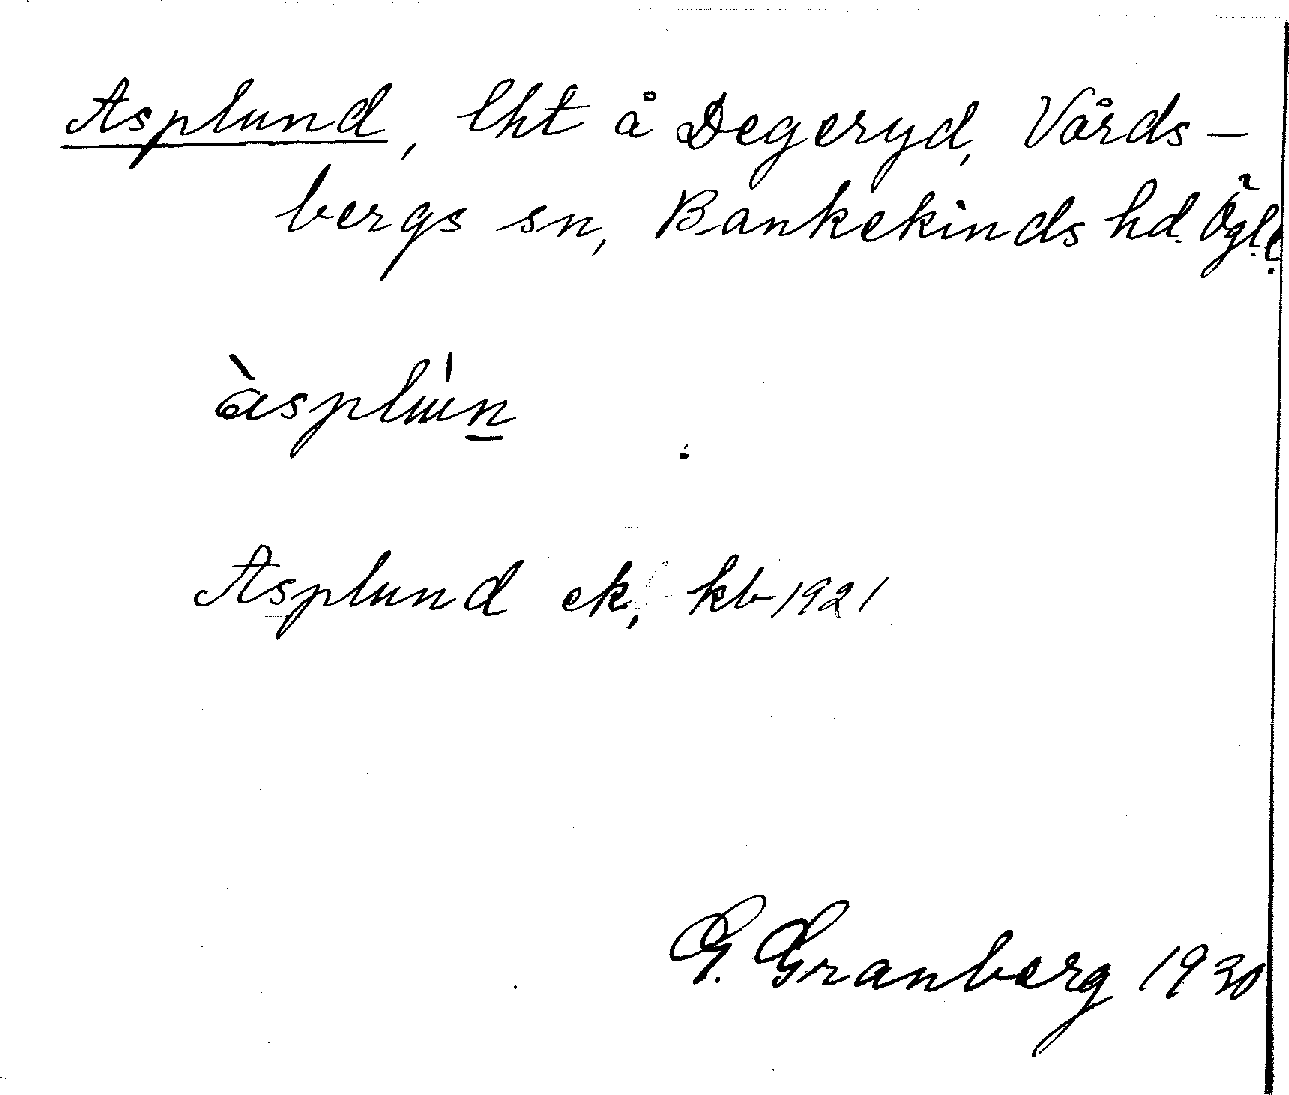 Asplund, lht å Degeryd, Vårds-
bergs sn, Bankekinds hd. Ögl.
àsplún̲
Asplund ek, kb 1921
G. Granberg 1930